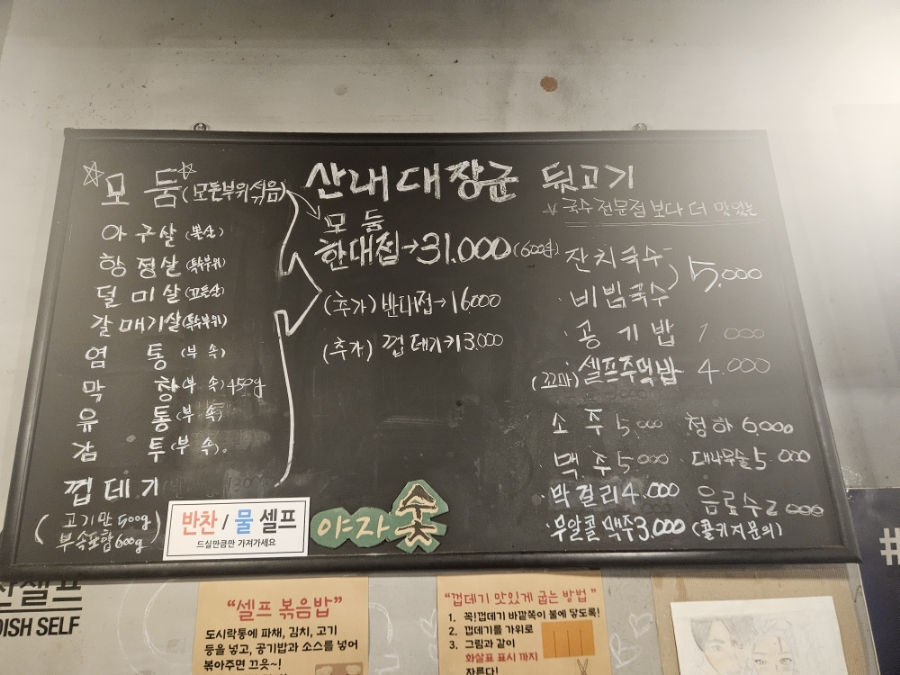 모 둠 (모든부위섞음)
아 구 살 (볼살)
항 정 살 (특수부위)
덜 미 살 (꼬들살)
갈 매 기 살 (특수부위)
염 통 (부 속)
막 창 (부 속) 450g
유 통 (부 속)
잠 투 (부 속)
껍 데 기
(고기만 500g)
부속포함 600g
산내 대장군 뒷고기
모 둠
한대접→31.000 (600g)
(추가) 반대접→16000
(추가) 껍데기 3.000
☆ 국수 전문점 보다 더 맛있는
·잔치국수
·비빔국수 ) 5,000
·공 기 밥 1 000
(꼬마) 셀프주먹밥 4.000
·소 주 5.000 청하 6,000
·맥 주 5000 대나무술 5 000
·막걸리 4.000 음료수 2 000
·무알콜 맥주 3.000 (콜키지문의)
반찬 / 물 셀프
드실만큼만 가져가세요
야자숯
찬셀프
DISH SELF
"셀프 볶음밥"
도시락통에 파채, 김치, 고기
등을 넣고, 공기밥과 소스를 넣어
볶아주면 끄읏~!
"껍데기 맛있게 굽는 방법"
1. 꼭!껍데기 바깥쪽이 불에 닿도록!
2. 껍데기를 가위로
3. 그림과 같이
화살표 표시 까지
자른다!
#